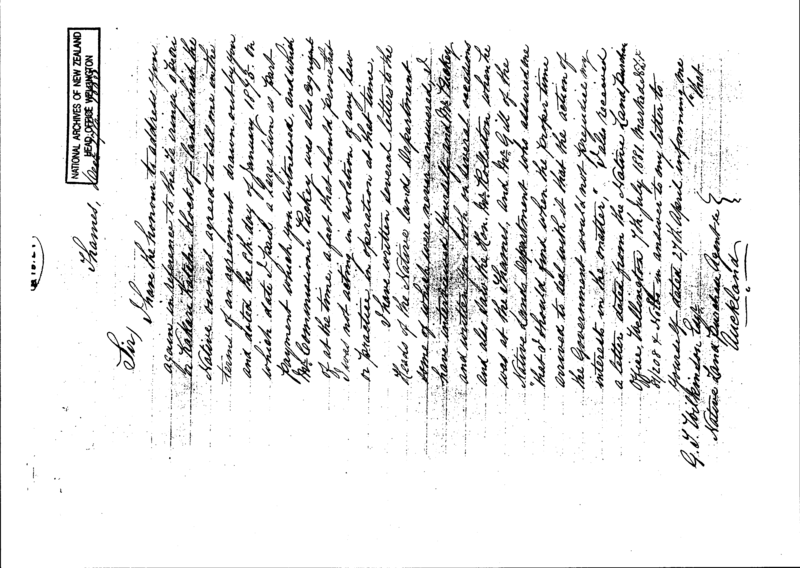 NATIONAL ARCHIVES OF NEW ZEALAND
HEAD OFFICE WELLINGTON
Thames,
Sir,
I have the honour to address you
again in reference to the
block of land which the
Native owners agreed to sell me on the
terms of an agreement drawn out by you
and dated the 6th day of January 1875. On
which date I paid a large sum as part
payment which you witnessed and which
Mr Commissioner Mackay was also cognizant
of at the time, a fact that should prove that
I was not acting in violation of any law
or practice in operation at that time.
I have written several letters to the
Heads of the Native Lands Department
some of which were never answered. I
have interviewed yourself and Mr Mackay
and on several occasions
and also saw the Hon. Mr Rolleston when he
was at the Thames, and Mr Gill of the
Native Lands Department who assured me
"that I should find when the proper time
arrived to deal with it that the action of
the Government would not prejudice my
interests in the matter." I also received
a letter dated from the Native Land Purchase
Office Wellington 7th July 1881 marked
in answer to my letter to
yourself dated 27th April informing me
that
G. T. Wilkinson Esqr
Native Land Purchase Agent
Auckland